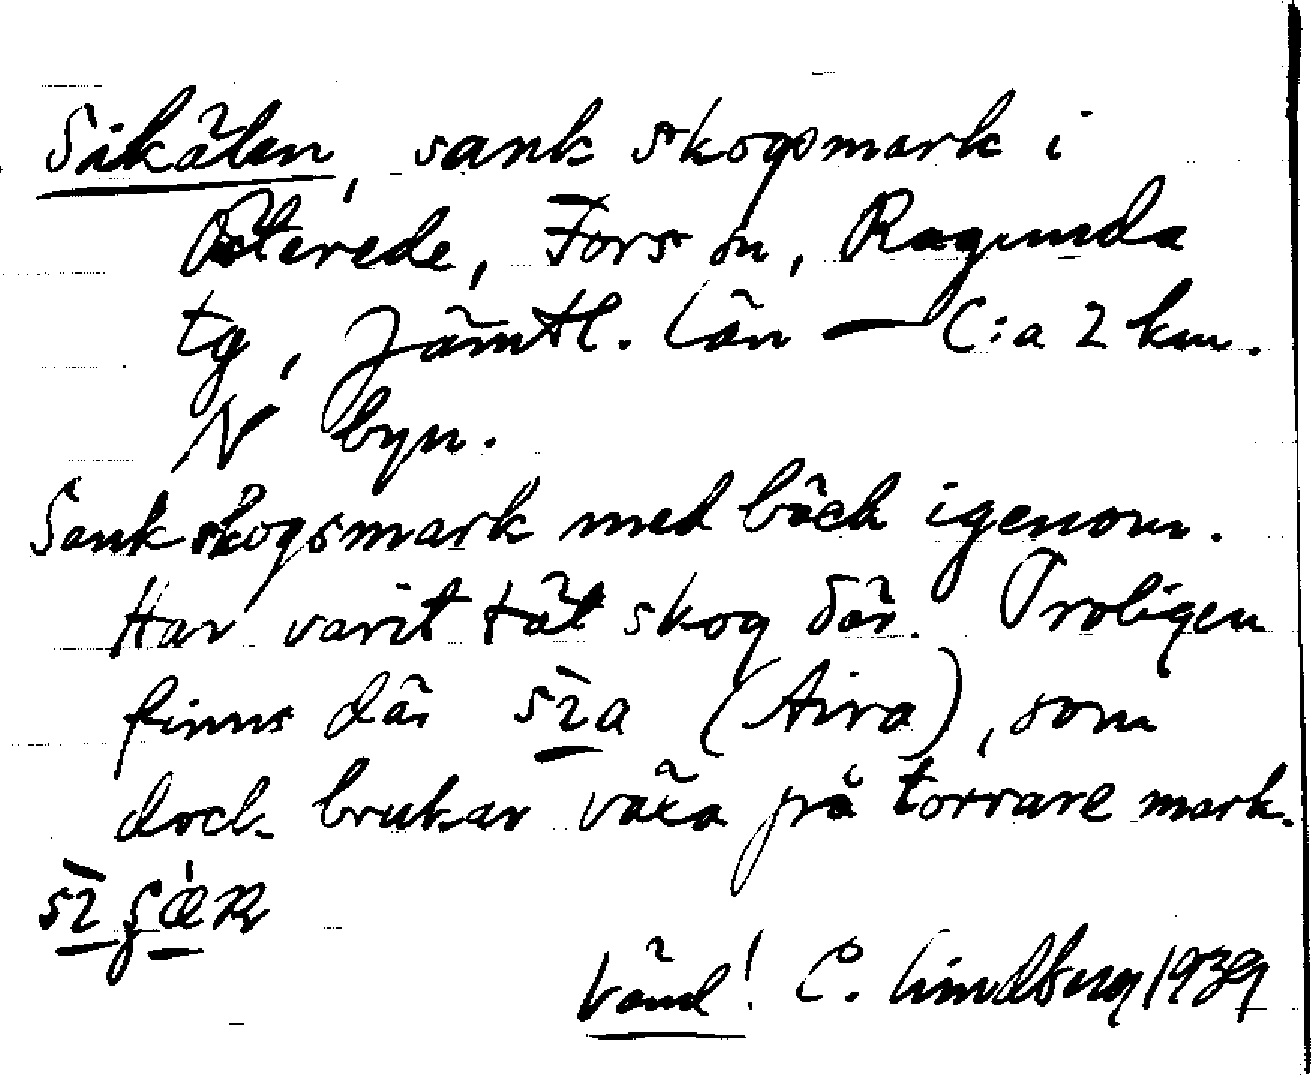 Sikälen, sank skogsmark i
Österede, Fors sn, Ragunda
tg, Jämtl. län — C:a 2 km.
N byn.
Sank skogsmark med bäck igenom.
Har varit tät skog där. Troligen
finns där sìa (Aira), som
dock brukar växa på torrare mark.
Vänd! C. Lindberg 1939